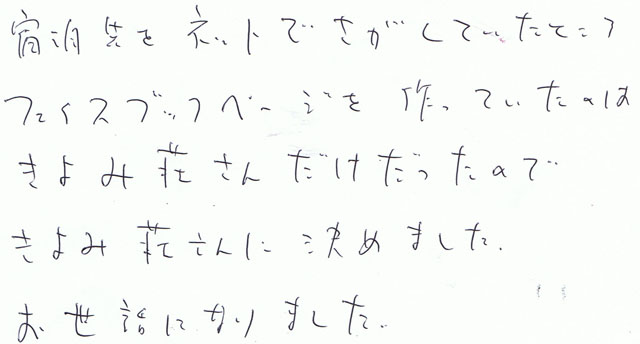 宿泊先をネットでさがしていたところ
フェイスブックページを作っていたのは
きよみ荘さんだけだったので
きよみ荘さんに決めました。
お世話になりました。